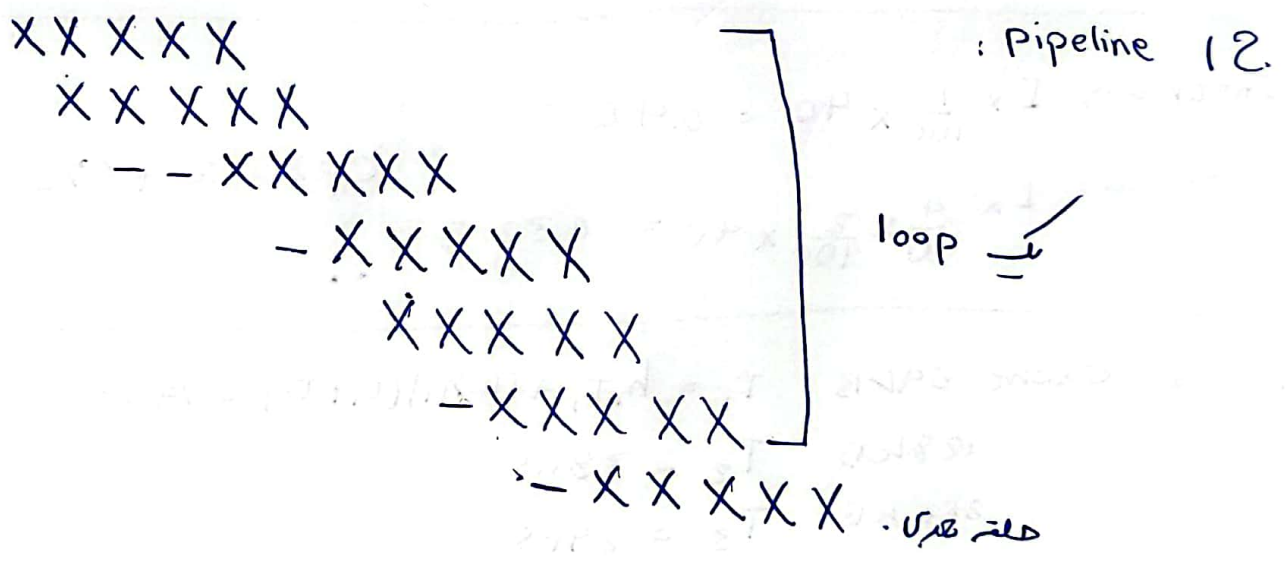 : pipeline 12.
X X X X X
X X X X X
- - X X X X X
- X X X X X
X X X X X
- X X X X X
- X X X X X
یک loop
حلقه بعدی.